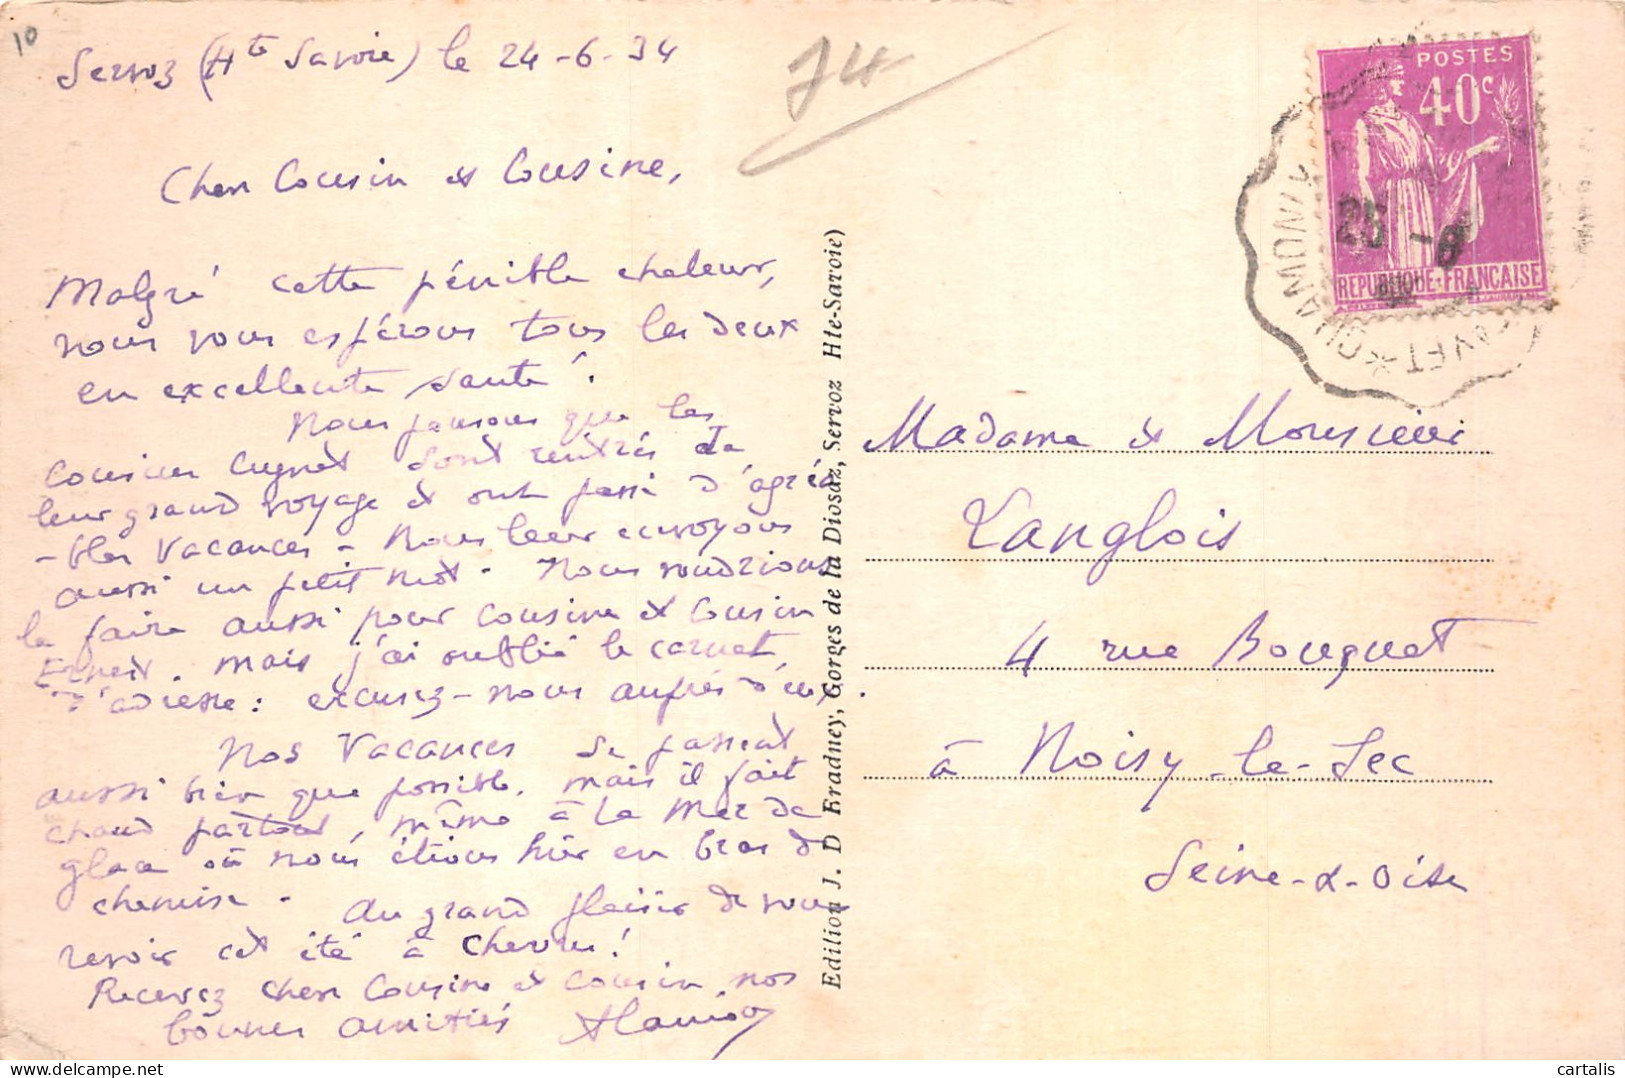 10
Servoz (Hte Savoie) le 24-6-34
74
Chers Cousin et Cousine,
Malgré cette pénible chaleur,
nous vous espérons tous les deux
en excellente santé !
Nous pensons que les
cousins Cugnet sont rentrés de
leur grand voyage et ont passé d'agréa
-bles vacances - Nous leur envoyons
aussi un petit mot. Nous voudrions
le faire aussi pour cousine et cousin
Ernest. mais j'ai oublié le carnet
d'adresse : excusez-nous auprès d'eux.
Nos Vacances se passent
aussi bien que possible. mais il fait
chaud partout, même à la Mer de
glace où nous étions hier en bras de
chemise - Au grand plaisir de vous
revoir cet été à
Recevez chers Cousine et cousin, nos
bonnes amitiés
Edition J. D Fradney, Gorges de la Diosaz, Servoz Hte-Savoie)
POSTES
40c
REPUBLIQUE FRANÇAISE
25 -6
CHAMONIX
Madame et Monsieur
Langlois
4 rue Bouquet
à Noisy-le-Sec
Seine-&-Oise
cartalis
delcampe.net